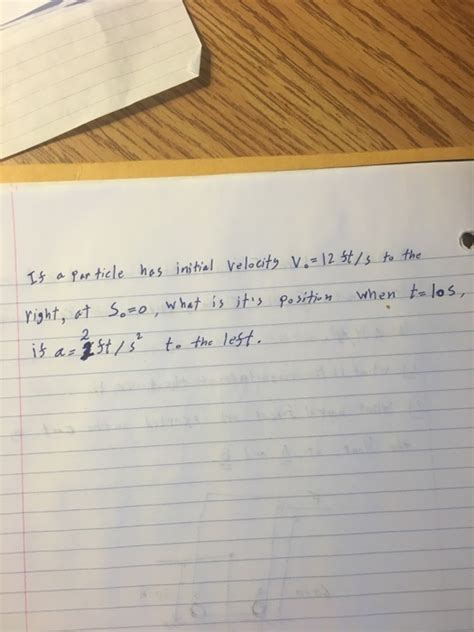 If a particle has initial velocity V₀=12 ft/s to the
right, at S₀=0, what is it's position when t=10s,
if a=2ft/s² to the left.